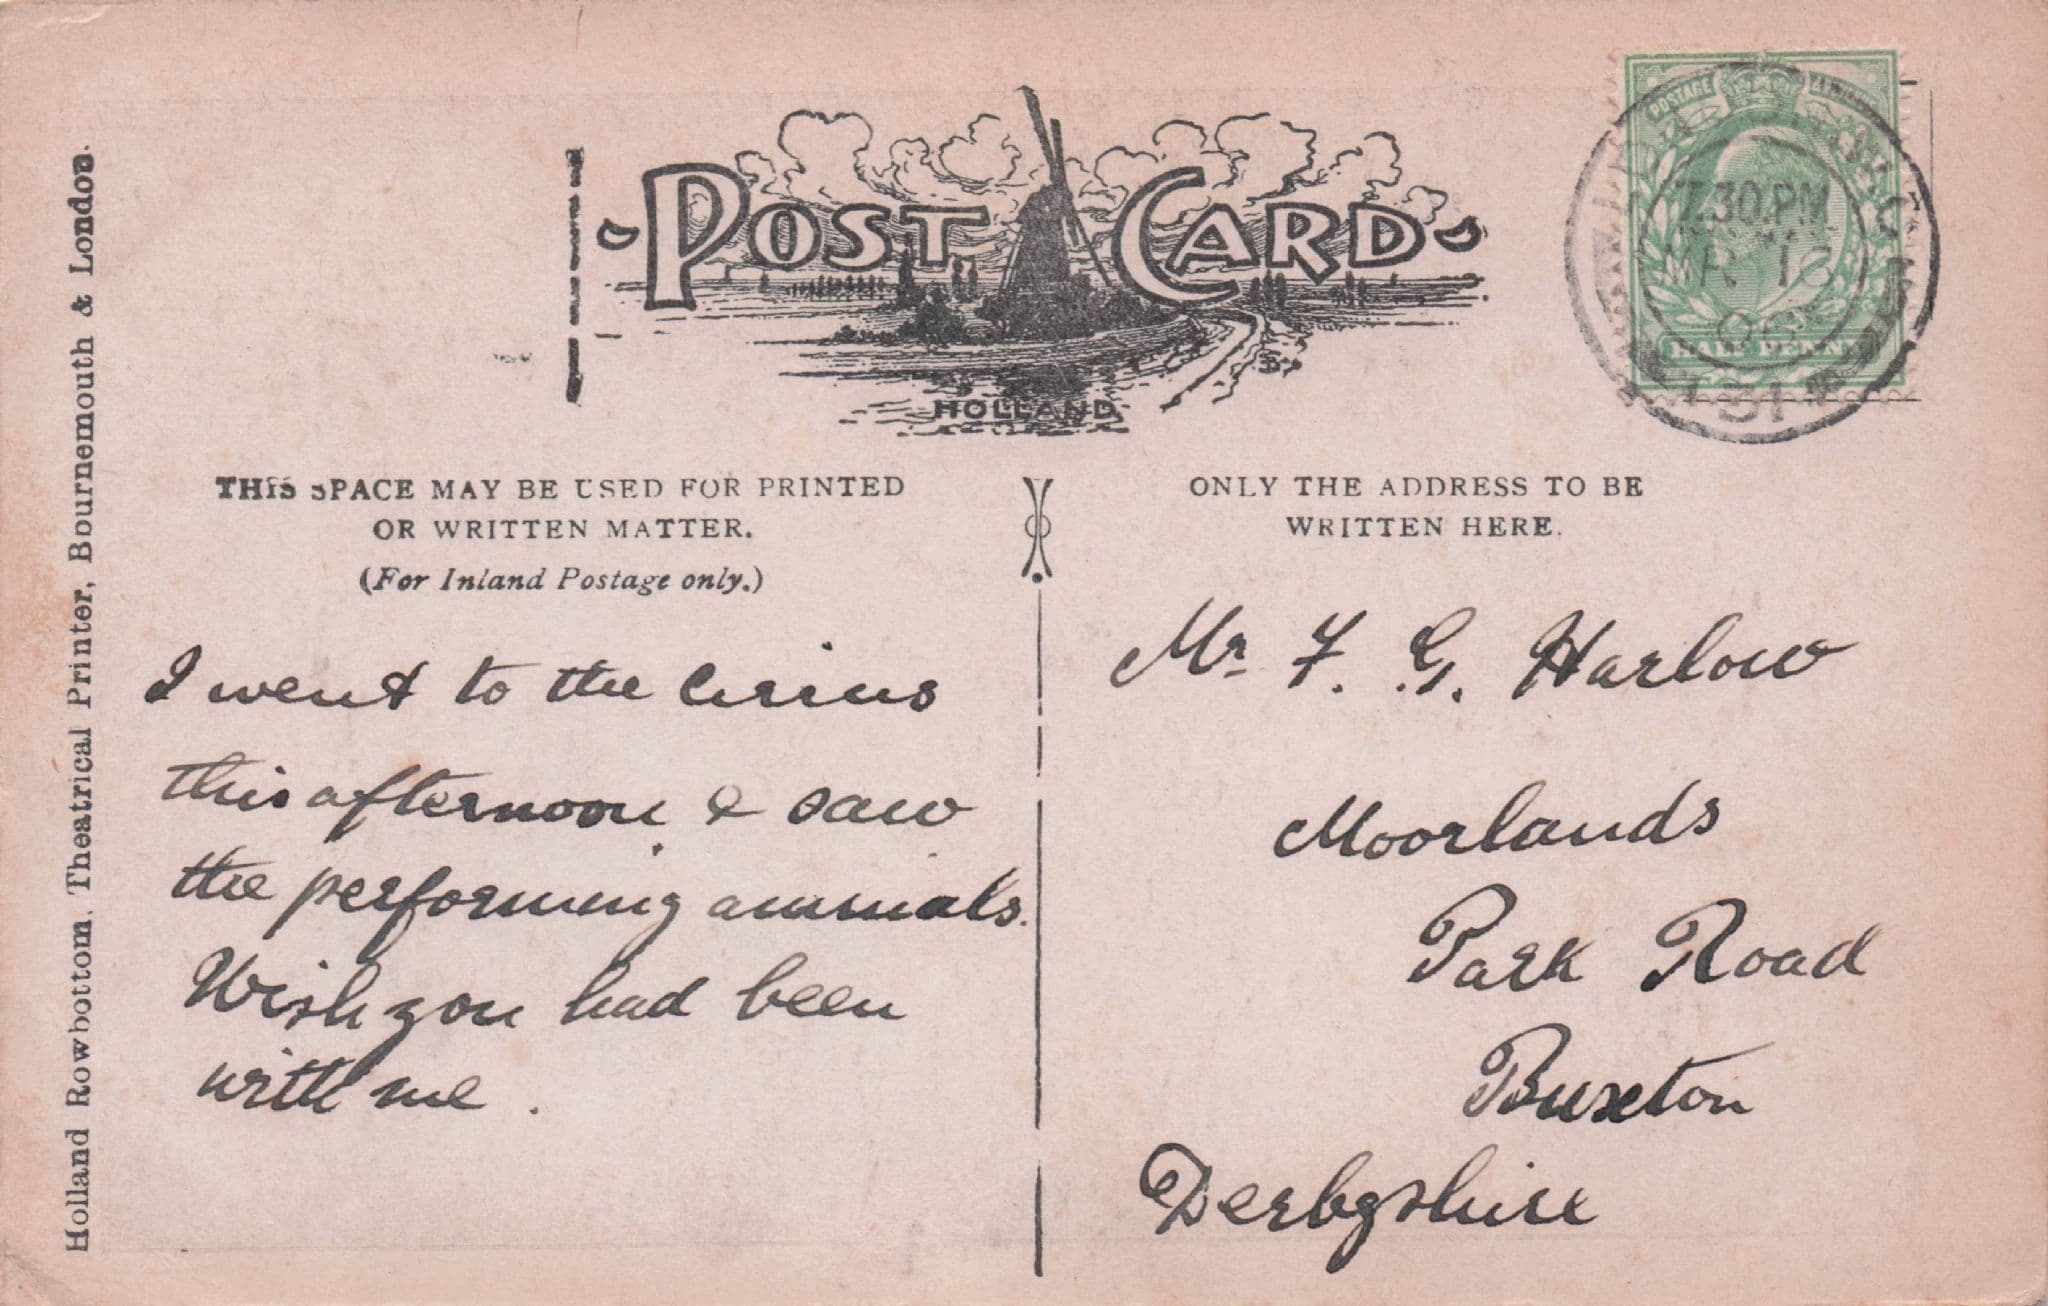 Holland Rowbottom, Theatrical Printer, Bournemouth & London.
POST CARD
HOLLAND
POSTAGE
7.30.PM
MR 13
HALF PENNY
131
THIS SPACE MAY BE USED FOR PRINTED
OR WRITTEN MATTER.
(For Inland Postage only.)
I went to the Circus
this afternoon & saw
the performing animals.
Wish you had been
with me.
ONLY THE ADDRESS TO BE
WRITTEN HERE.
Mr. F. G. Harlow
Moorlands
Park Road
Buxton
Derbyshire